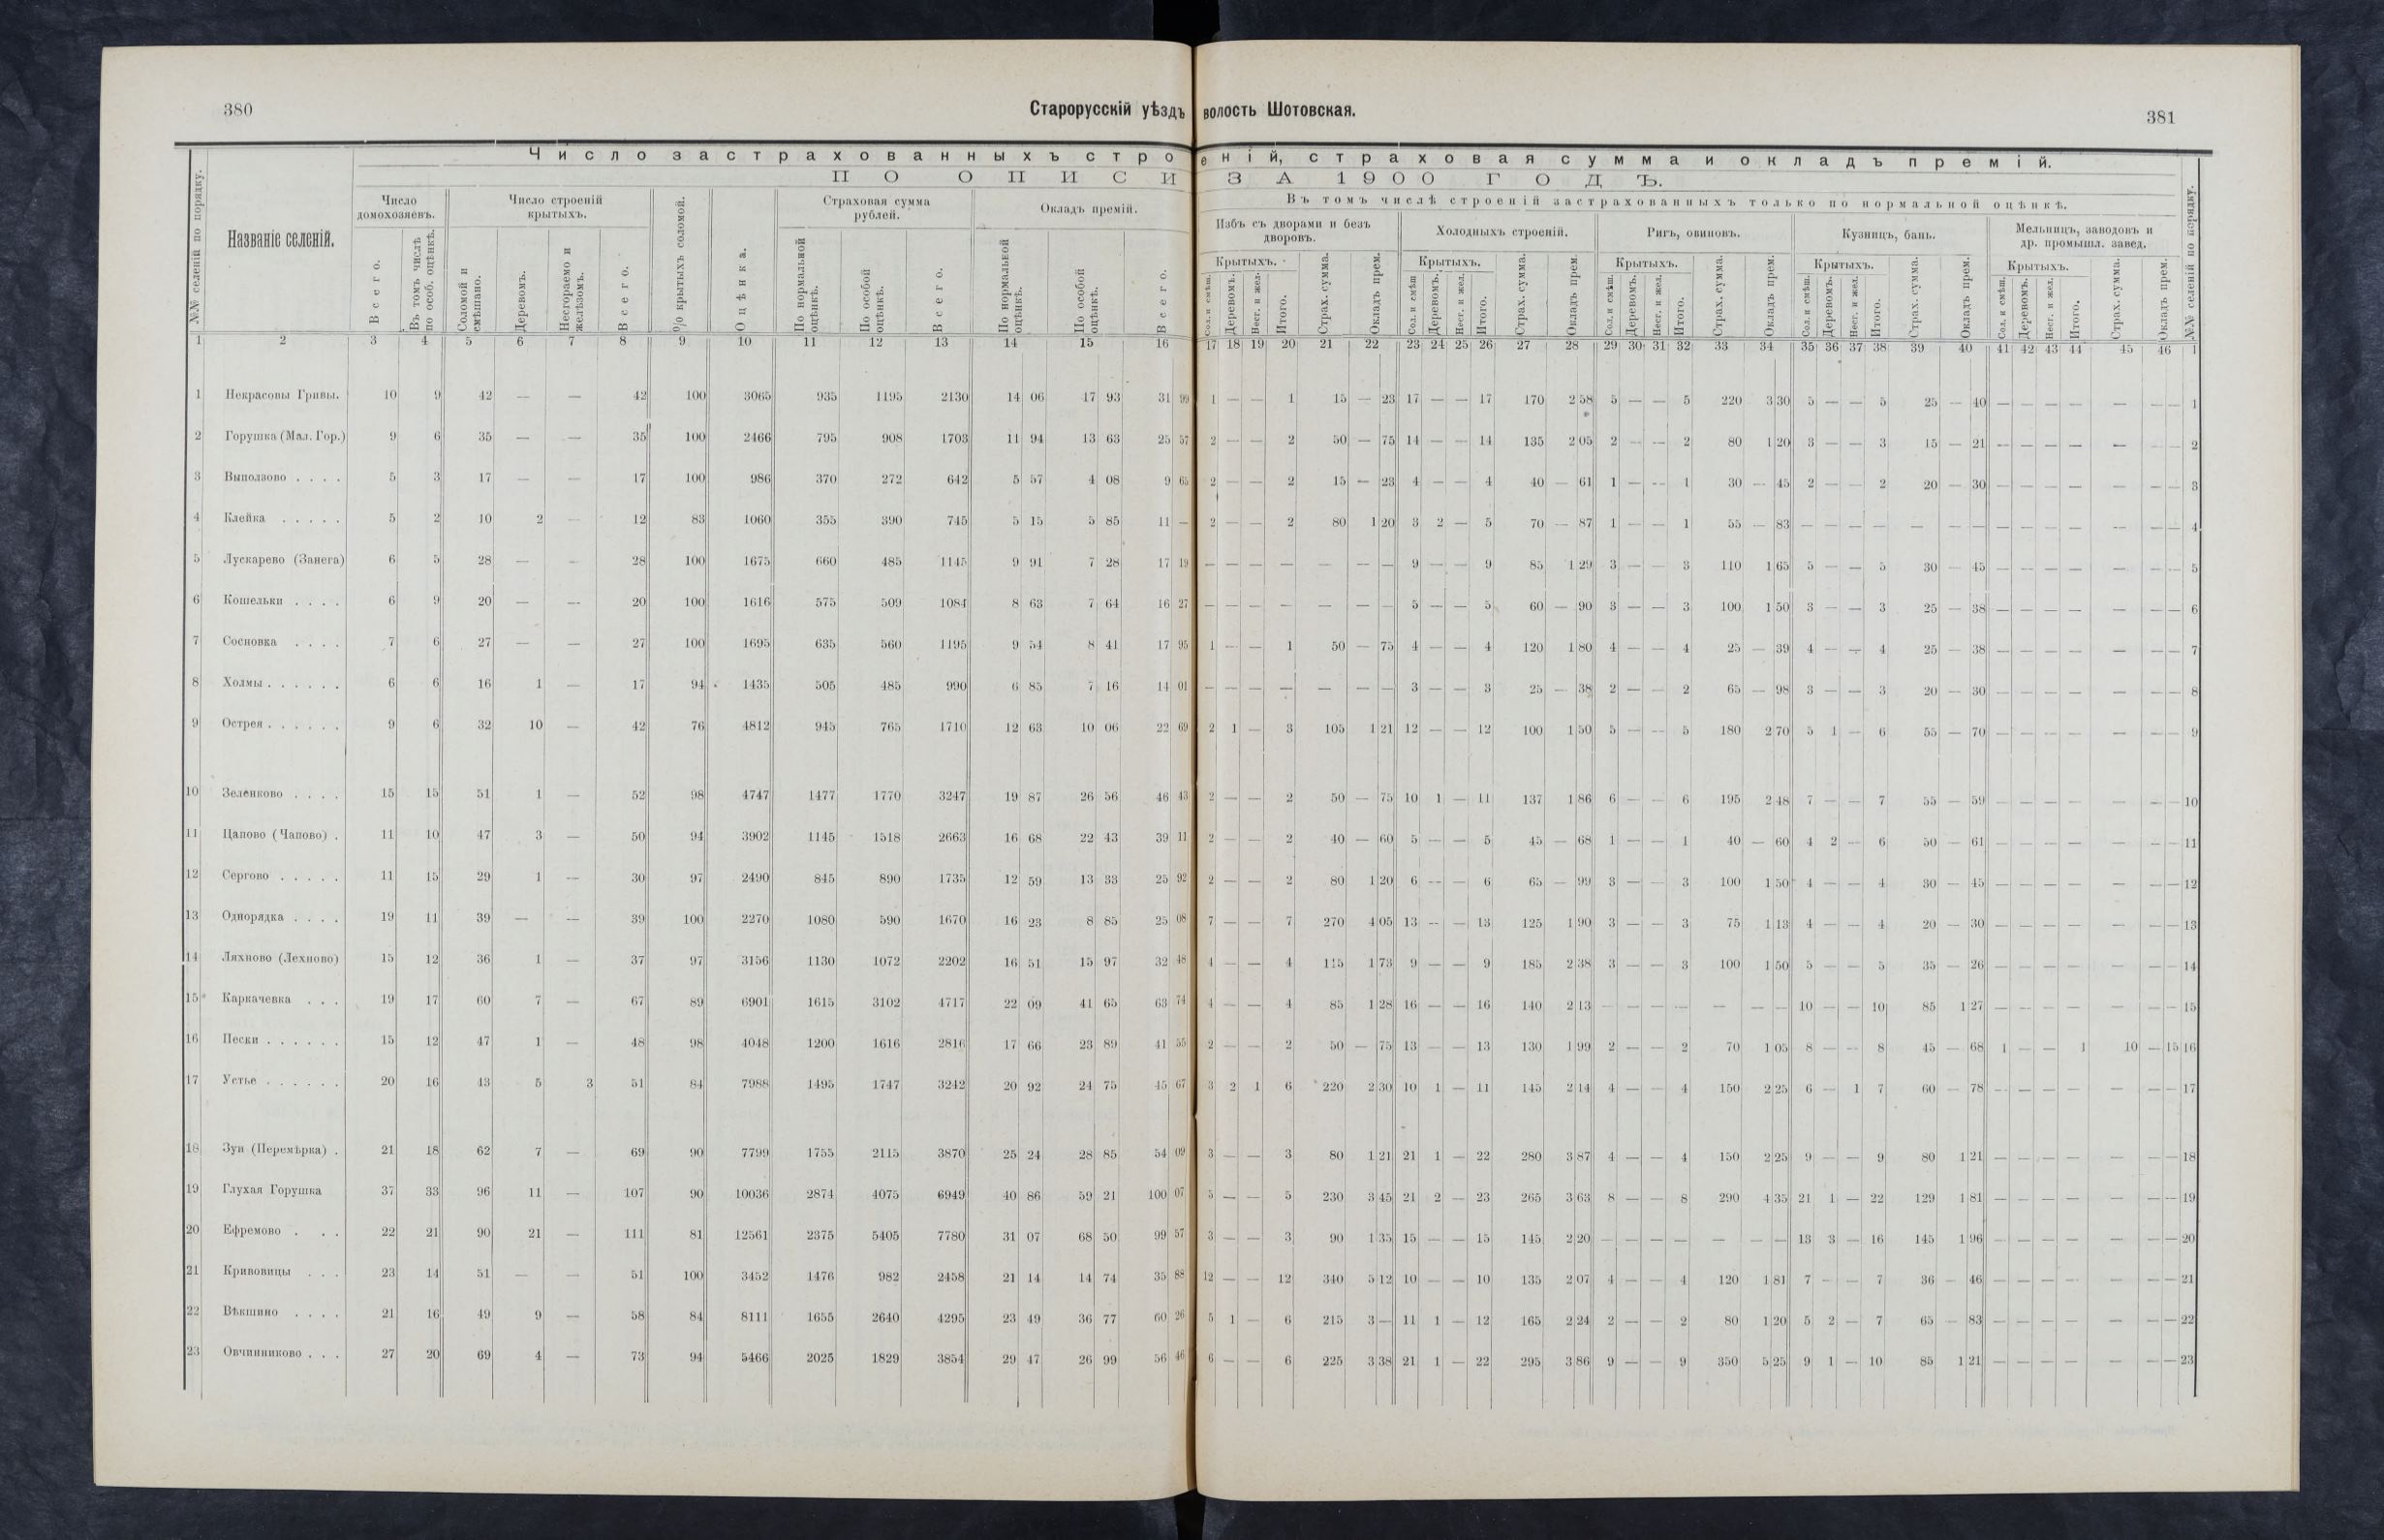 380
Старорусскій уѣздъ волость Шотовская.
381
Число застрахованныхъ строеній, страховая сумма и окладъ премій.
ПО ОПИСИ ЗА 1900 ГОДЪ.
Въ томъ числѣ строеній застрахованныхъ только по нормальной оцѣнкѣ.
№№ селеній по порядку.
Названіе селеній.
Число домохозяевъ.
Всего.
Въ томъ числѣ по особ. оцѣнкѣ.
Число строеній крытыхъ.
Соломой и смѣшано.
Деревомъ.
Несгораемо и желѣзомъ.
Всего.
% крытыхъ соломой.
Оцѣнка.
Страховая сумма рублей.
По нормальной оцѣнкѣ.
По особой оцѣнкѣ.
Всего.
Окладъ премій.
По нормальной оцѣнкѣ.
По особой оцѣнкѣ.
Всего.
Избъ съ дворами и безъ дворовъ.
Крытыхъ.
Сол. и смѣш.
Деревомъ.
Несг. и жел.
Итого.
Страх. сумма.
Окладъ прем.
Холодныхъ строеній.
Крытыхъ.
Сол. и смѣш.
Деревомъ.
Несг. и жел.
Итого.
Страх. сумма.
Окладъ прем.
Ригъ, овиновъ.
Крытыхъ.
Сол. и смѣш.
Деревомъ.
Несг. и жел.
Итого.
Страх. сумма.
Окладъ прем.
Кузницъ, бань.
Крытыхъ.
Сол. и смѣш.
Деревомъ.
Несг. и жел.
Итого.
Страх. сумма.
Окладъ прем.
Мельницъ, заводовъ и др. промышл. завед.
Крытыхъ.
Сол. и смѣш.
Деревомъ.
Несг. и жел.
Итого.
Страх. сумма.
Окладъ прем.
№№ селеній по порядку.
1 2 3 4 5 6 7 8 9 10 11 12 13 14 15 16 17 18 19 20 21 22 23 24 25 26 27 28 29 30 31 32 33 34 35 36 37 38 39 40 41 42 43 44 45 46 1
1 Некрасовы Гривы. 10 9 42 — — 42 100 3065 935 1195 2130 14 06 17 93 31 99 1 — — 1 15 — 23 17 — — 17 170 2 58 5 — — 5 220 3 30 5 — — 5 25 — 40 — — — — — — — 1
2 Горушка (Мал. Гор.) 9 6 35 — — 35 100 2466 795 908 1703 11 94 13 63 25 57 2 — — 2 50 — 75 14 — — 14 135 2 05 2 — — 2 80 1 20 3 — — 3 15 — 21 — — — — — — — 2
3 Выползово . . . . 5 3 17 — — 17 100 986 370 272 642 5 57 4 08 9 65 2 — — 2 15 — 23 4 — — 4 40 — 61 1 — — 1 30 — 45 2 — — 2 20 — 30 — — — — — — — 3
4 Клейка . . . . . 5 2 10 2 — 12 83 1060 355 390 745 5 15 5 85 11 — 2 — — 2 80 1 20 3 2 — 5 70 — 87 1 — — 1 55 — 83 — — — — — — — — — — — — — — 4
5 Лускарево (Занега) 6 5 28 — — 28 100 1675 660 485 1145 9 91 7 28 17 19 — — — — — — — 9 — — 9 85 1 29 3 — — 3 110 1 65 5 — — 5 30 — 45 — — — — — — — 5
6 Кошельки . . . . 6 9 20 — — 20 100 1616 575 509 1084 8 63 7 64 16 27 — — — — — — — 5 — — 5 60 — 90 3 — — 3 100 1 50 3 — — 3 25 — 38 — — — — — — — 6
7 Сосновка . . . . 7 6 27 — — 27 100 1695 635 560 1195 9 54 8 41 17 95 1 — — 1 50 — 75 4 — — 4 120 1 80 4 — — 4 25 — 39 4 — — 4 25 — 38 — — — — — — — 7
8 Холмы . . . . . . 6 6 16 1 — 17 94 1435 505 485 990 6 85 7 16 14 01 — — — — — — — 3 — — 3 25 — 38 2 — — 2 65 — 98 3 — — 3 20 — 30 — — — — — — — 8
9 Острея . . . . . . 9 6 32 10 — 42 76 4812 945 765 1710 12 63 10 06 22 69 2 1 — 3 105 1 21 12 — — 12 100 1 50 5 — — 5 180 2 70 5 1 — 6 55 — 70 — — — — — — — 9
10 Зеленково . . . . 15 15 51 1 — 52 98 4747 1477 1770 3247 19 87 26 56 46 43 2 — — 2 50 — 75 10 1 — 11 137 1 86 6 — — 6 195 2 48 7 — — 7 55 — 59 — — — — — — — 10
11 Цапово (Чапово) . 11 10 47 3 — 50 94 3902 1145 1518 2663 16 68 22 43 39 11 2 — — 2 40 — 60 5 — — 5 45 — 68 1 — — 1 40 — 60 4 2 — 6 50 — 61 — — — — — — — 11
12 Сергово . . . . . 11 15 29 1 — 30 97 2490 845 890 1735 12 59 13 33 25 92 2 — — 2 80 1 20 6 — — 6 65 — 99 3 — — 3 100 1 50 4 — — 4 30 — 45 — — — — — — — 12
13 Однорядка . . . . 19 11 39 — — 39 100 2270 1080 590 1670 16 23 8 85 25 08 7 — — 7 270 4 05 13 — — 13 125 1 90 3 — — 3 75 1 13 4 — — 4 20 — 30 — — — — — — — 13
14 Ляхново (Лехново) 15 12 36 1 — 37 97 3156 1130 1072 2202 16 51 15 97 32 48 4 — — 4 115 1 73 9 — — 9 185 2 38 3 — — 3 100 1 50 5 — — 5 35 — 26 — — — — — — — 14
15 Каркачевка . . . 19 17 60 7 — 67 89 6901 1615 3102 4717 22 09 41 65 63 74 4 — — 4 85 1 28 16 — — 16 140 2 13 — — — — — — — 10 — — 10 85 1 27 — — — — — — — 15
16 Пески . . . . . . 15 12 47 1 — 48 98 4048 1200 1616 2816 17 66 23 89 41 55 2 — — 2 50 — 75 13 — — 13 130 1 99 2 — — 2 70 1 05 8 — — 8 45 — 68 1 — — 1 10 — 15 16
17 Устье . . . . . . 20 16 43 5 3 51 84 7988 1495 1747 3242 20 92 24 75 45 67 3 2 1 6 220 2 30 10 1 — 11 145 2 14 4 — — 4 150 2 25 6 — 1 7 60 — 78 — — — — — — — 17
18 Зуи (Перемѣрка) . 21 18 62 7 — 69 90 7799 1755 2115 3870 25 24 28 85 54 09 3 — — 3 80 1 21 21 1 — 22 280 3 87 4 — — 4 150 2 25 9 — — 9 80 1 21 — — — — — — — 18
19 Глухая Горушка 37 33 96 11 — 107 90 10036 2874 4075 6949 40 86 59 21 100 07 5 — — 5 230 3 45 21 2 — 23 265 3 63 8 — — 8 290 4 35 21 1 — 22 129 1 81 — — — — — — — 19
20 Ефремово . . . 22 21 90 21 — 111 81 12561 2375 5405 7780 31 07 68 50 99 57 3 — — 3 90 1 35 15 — — 15 145 2 20 — — — — — — — 13 3 — 16 145 1 96 — — — — — — — 20
21 Кривовицы . . . 23 14 51 — — 51 100 3452 1476 982 2458 21 14 14 74 35 88 12 — — 12 340 5 12 10 — — 10 135 2 07 4 — — 4 120 1 81 7 — — 7 36 — 46 — — — — — — — 21
22 Вѣкшино . . . . 21 16 49 9 — 58 84 8111 1655 2640 4295 23 49 36 77 60 26 5 1 — 6 215 3 — 11 1 — 12 165 2 24 2 — — 2 80 1 20 5 2 — 7 65 — 83 — — — — — — — 22
23 Овчинниково . . . 27 20 69 4 — 73 94 5466 2025 1829 3854 29 47 26 99 56 46 6 — — 6 225 3 38 21 1 — 22 295 3 86 9 — — 9 350 5 25 9 1 — 10 85 1 21 — — — — — — — 23